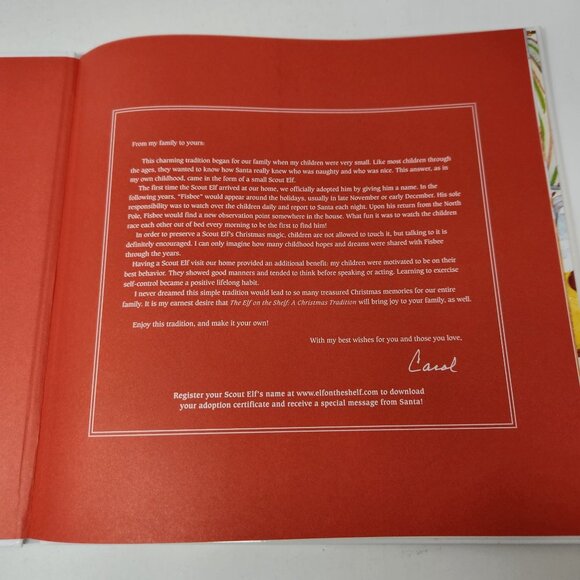 From my family to yours:
This charming tradition began for our family when my children were very small. Like most children through
the ages, they wanted to know how Santa really knew who was naughty and who was nice. This answer, as in
my own childhood, came in the form of a small Scout Elf.
The first time the Scout Elf arrived at our home, we officially adopted him by giving him a name. In the
following years, "Fisbee" would appear around the holidays, usually in late November or early December. His sole
responsibility was to watch over the children daily and report to Santa each night. Upon his return from the North
Pole, Fisbee would find a new observation point somewhere in the house. What fun it was to watch the children
race each other out of bed every morning to be the first to find him!
In order to preserve a Scout Elf's Christmas magic, children are not allowed to touch it, but talking to it is
definitely encouraged. I can only imagine how many childhood hopes and dreams were shared with Fisbee
through the years.
Having a Scout Elf visit our home provided an additional benefit: my children were motivated to be on their
best behavior. They showed good manners and tended to think before speaking or acting. Learning to exercise
self-control became a positive lifelong habit.
I never dreamed this simple tradition would lead to so many treasured Christmas memories for our entire
family. It is my earnest desire that The Elf on the Shelf: A Christmas Tradition will bring joy to your family, as well.
Enjoy this tradition, and make it your own!
With my best wishes for you and those you love,
Carol
Register your Scout Elf's name at www.elfontheshelf.com to download
your adoption certificate and receive a special message from Santa!